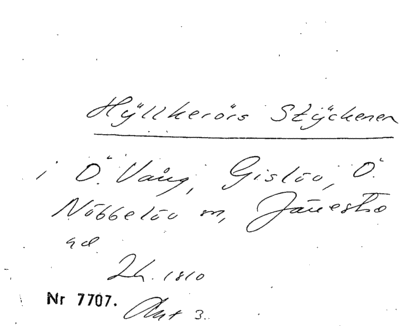 Hÿllkerörs Stÿckenen
i Ö. Vång, Gislöv, Ö.
Nöbbelöv m, Järrestad
1810
Nr 7707. Akt 3.